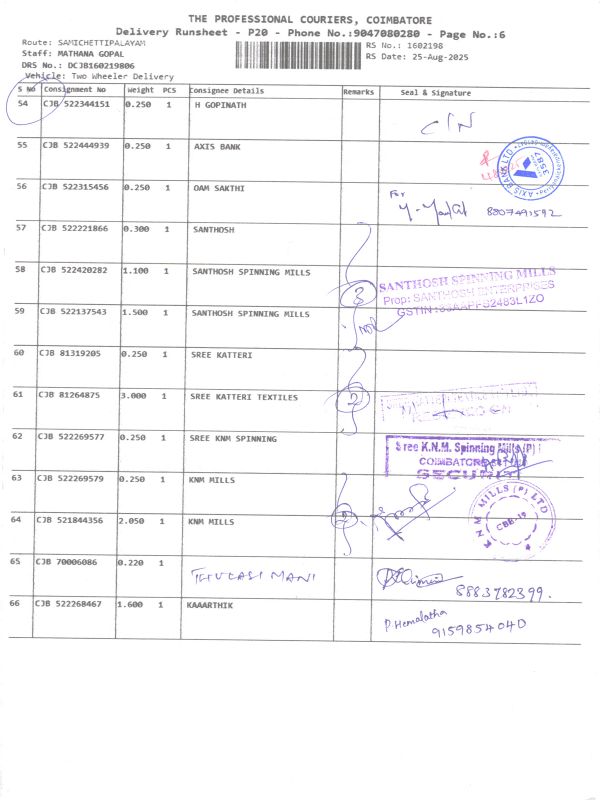 THE PROFESSIONAL COURIERS, COIMBATORE
Delivery Runsheet - P20 - Phone No.:9047080280 - Page No.:6
Route: SAMICHETTIPALAYAM
Staff: MATHANA GOPAL
DRS No.: DCJB160219806
Vehicle: Two Wheeler Delivery
RS No.: 1602198
RS Date: 25-Aug-2025
S No Consignment No Weight PCS Consignee Details Remarks Seal & Signature
54 CJB 522344151 0.250 1 H GOPINATH
55 CJB 522444939 0.250 1 AXIS BANK
AXIS BANK LTD
3587
56 CJB 522315456 0.250 1 OAM SAKTHI
For
8807491592
57 CJB 522221866 0.300 1 SANTHOSH
58 CJB 522420282 1.100 1 SANTHOSH SPINNING MILLS
3
SANTHOSH SPINNING MILLS
Prop: SANTHOSH ENTERPRISES
59 CJB 522137543 1.500 1 SANTHOSH SPINNING MILLS
60 CJB 81319205 0.250 1 SREE KATTERI
61 CJB 81264875 3.000 1 SREE KATTERI TEXTILES
2
62 CJB 522269577 0.250 1 SREE KNM SPINNING
Sree K.N.M. Spinning Mills (P)
COIMBATORE
SECURITY
63 CJB 522269579 0.250 1 KNM MILLS
64 CJB 521844356 2.050 1 KNM MILLS
2
KNM MILLS (P) LTD
CBB-19
65 CJB 70006086 0.220 1 THULASI MANI
8883782399.
66 CJB 522268467 1.600 1 KAAARTHIK
P. Hemalatha
9159854040